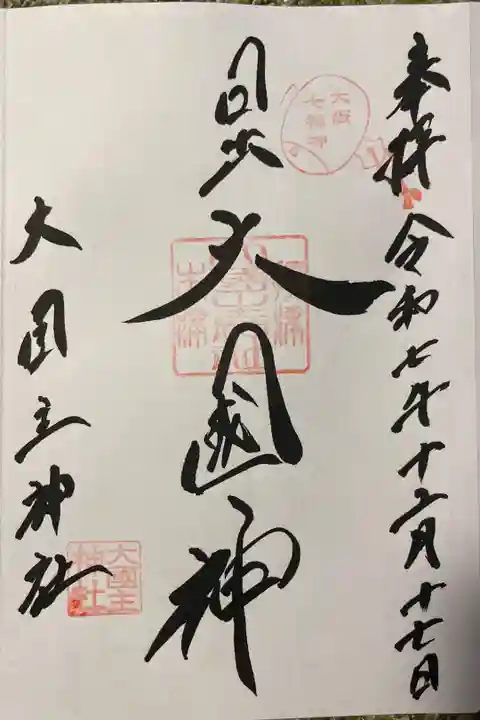 奉拝 令和七年十二月十七日
大阪
七福神
日出大国神
大国主神社
大國主
神社